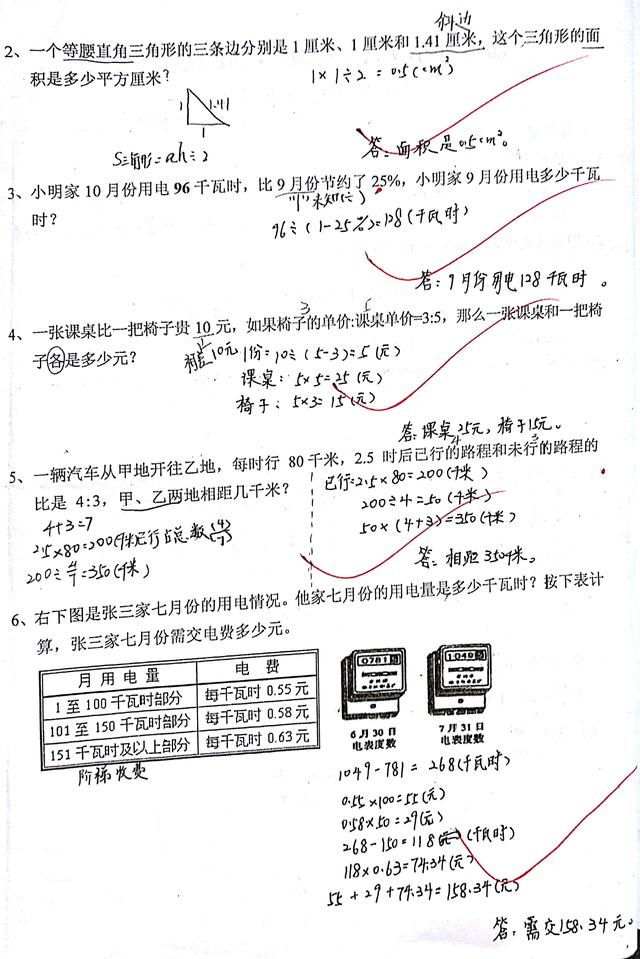 斜边
2、一个等腰直角三角形的三条边分别是 1 厘米、1 厘米和 1.41 厘米，这个三角形的面
积是多少平方厘米？
1×1÷2 = 0.5(cm²)
1
1.41
1
S三角形=ah÷2
答：面积是0.5cm²。
3、小明家 10 月份用电 96 千瓦时，比 9 月份节约了 25%，小明家 9 月份用电多少千瓦
时？
"1"未知(÷)
96÷(1-25%)=128(千瓦时)
答：9月份用电128千瓦时。
3 5
4、一张课桌比一把椅子贵 10 元，如果椅子的单价:课桌单价=3:5，那么一张课桌和一把椅
子各是多少元？
相差10元
1份=10÷(5-3)=5(元)
课桌：5×5=25(元)
椅子：5×3=15(元)
答：课桌25元，椅子15元。
4 3
5、一辆汽车从甲地开往乙地，每时行 80 千米，2.5 时后已行的路程和未行的路程的
比是 4:3，甲、乙两地相距几千米？
已行:2.5×80=200(千米)
200÷4=50(千米)
50×(4+3)=350(千米)
4+3=7
2.5×80=200(千米)已行占总数(4/7)
200÷4/7=350(千米)
答：相距350千米。
6、右下图是张三家七月份的用电情况。他家七月份的用电量是多少千瓦时？按下表计
算，张三家七月份需交电费多少元。
月用电量 电费
1 至 100 千瓦时部分 每千瓦时 0.55 元
101 至 150 千瓦时部分 每千瓦时 0.58 元
151 千瓦时及以上部分 每千瓦时 0.63 元
阶梯收费
0781
1049
6月30日
电表度数
7月31日
电表度数
1049-781 = 268(千瓦时)
0.55×100=55(元)
0.58×50=29(元)
268-150=118(千瓦时)
118×0.63=74.34(元)
55+29+74.34=158.34(元)
答：需交158.34元。